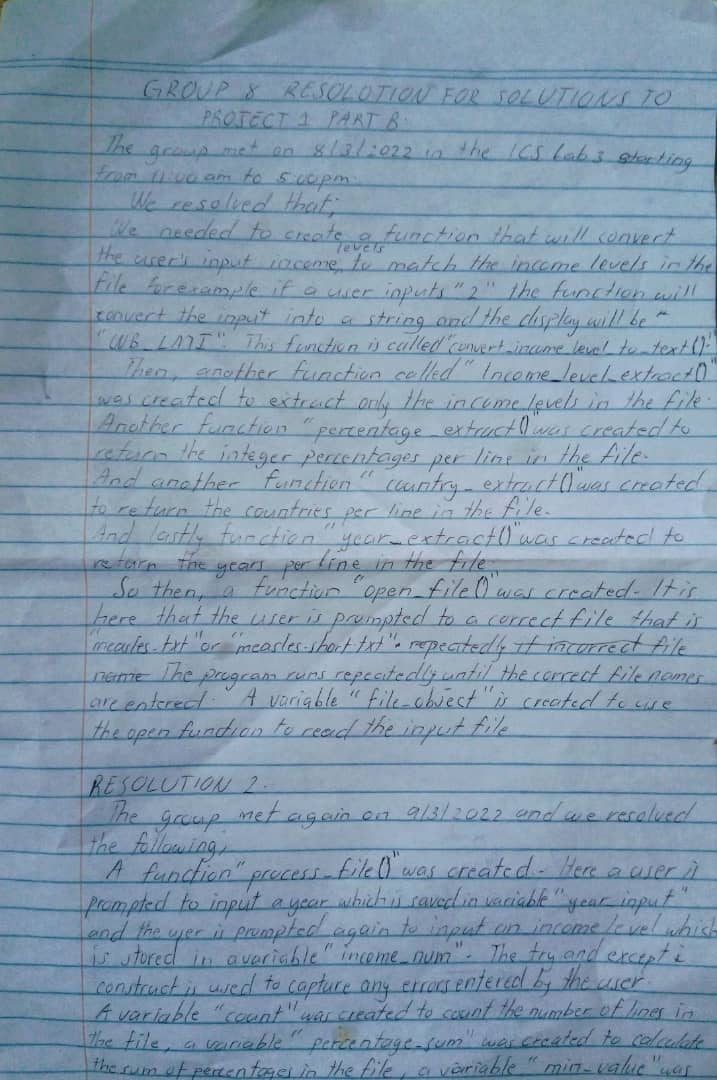 GROUP 8 RESOLOTION FOR SOLUTIONS TO
PROJECT 1 PART B.
The group met on 8/3/2022 in the ICS Lab 3 starting
from 11:00 am to 5:00pm.
We resolved that;
We needed to create a function that will convert
levels
the user's input income, to match the income levels in the
file forexample if a user inputs "2" the function will
convert the input into a string and the display will be "
"WB_LMI". This function is called "convert_income_level_to_text()"
Then, another function called "Income_level_extract()"
was created to extract only the income levels in the file.
Another function "percentage_extract()" was created to
return the integer percentages per line in the file.
And another function "country_extract()" was created
to return the countries per line in the file.
And lastly function "year_extract()" was created to
return the years per line in the file.
So then, a function "open_file()" was created. It is
here that the user is prompted to a correct file that is
"measles.txt" or "measles-short.txt". repeatedly if incorrect file
name The program runs repeatedly until the correct file names
are entered. A variable "file_object" is created to use
the open function to read the input file
RESOLUTION 2.
The group met again on 9/3/2022 and we resolved
the following;
A function "process_file()" was created. Here a user is
prompted to input a year which is saved in variable "year_input"
and the user is prompted again to input an income level which
is stored in avariable "income_num". The try and except
construct is used to capture any errors entered by the user.
A variable "count" was created to count the number of lines in
the file, a variable "percentage_sum" was created to calculate
the sum of percentages in the file, a variable "min_value" was